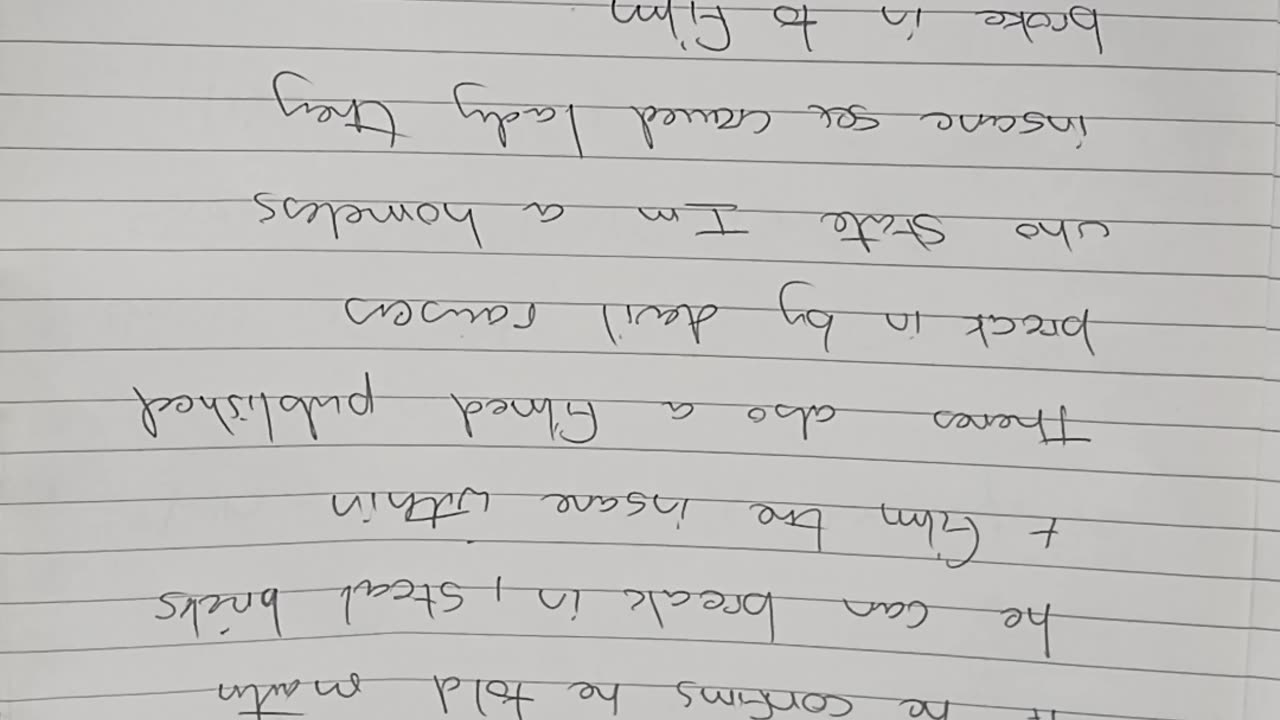 he confirms he told martin
he can break in, steal bricks
+ film the insane within
Theres also a filmed published
break in by devil raisers
who state I'm a homeless
insane sex craved lady they
broke in to film